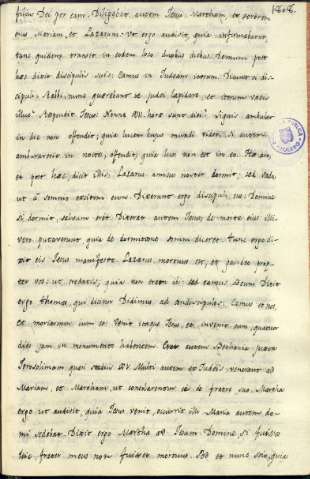 filius Dei per eam. Diligebat autem Jesus Martham, et sororem
eius Mariam, et Lazarum. Ut ergo audivit, quia infirmabatur,
tunc quidem mansit in eodem loco duobus diebus. Deinde post
hæc dixit discipulis suis: Eamus in Judeam iterum. Dicunt ei disci-
puli: Rabbi, nunc quærebant te Judei lapidare, et iterum vadis
illuc? Respondit Jesus: Nonne XII. horæ sunt diei? Siquis ambulaverit
in die non offendit, quia lucem hujus mundi videt: Si autem
ambulaverit in nocte, offendit, quia lux non est in eo. Hæc ait,
et post hæc dicit illis: Lazarus amicus noster dormit, sed vado,
ut a somno excitem eum. Dixerunt ergo discipuli ejus: Domine
si dormit, salvus erit. Dixerat autem Jesus de morte ejus illi
vero putaverunt quia de dormitione somni diceret. Tunc ergo di-
xit eis Jesus manifeste: Lazarus mortuus est, et gaudeo prop-
ter vos, ut credatis, quia non eram ibi: sed eamus ad eum. Dixit
ergo Thomas, qui dicitur Didimus, ad condiscipulos: Eamus et nos,
et moriamur cum eo. Venit itaque Jesus, et invenit eum, quatuor
dies jam in monumento habentem. Erat autem Bethania juxta
Jerosolimam quasi stadiis XV. Multi autem ex Judeis venerant ad
Mariam, et Martham, ut consolarentur eas de fratre suo. Martha
ergo ut audivit, quia Jesus venit, occurrit illi: Maria autem do-
mi sedebat. Dixit ergo Martha ad Jesum: Domine, si fuisses
hic, frater meus non fuisset mortuus. Sed et nunc scio, quia